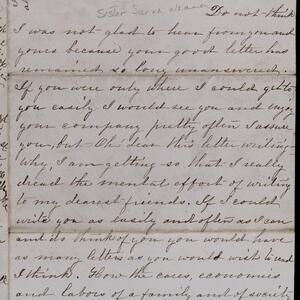 Sister Sarah
Do not think
I was not glad to hear from you and
yours because your good letter has
remained so long unanswered.
If you were only where I could get to
you easily I would see you and enjoy
your company pretty often I assure
you, but Oh! dear this letter writing
why, I am getting so that I really
dread the mental effort of writing
to my dearest friends. If I could
write you as easily and often as I can
and do think of you you would have
as many letters as you would wish to read
I think. How the cares, economics
and labors of a family and of society